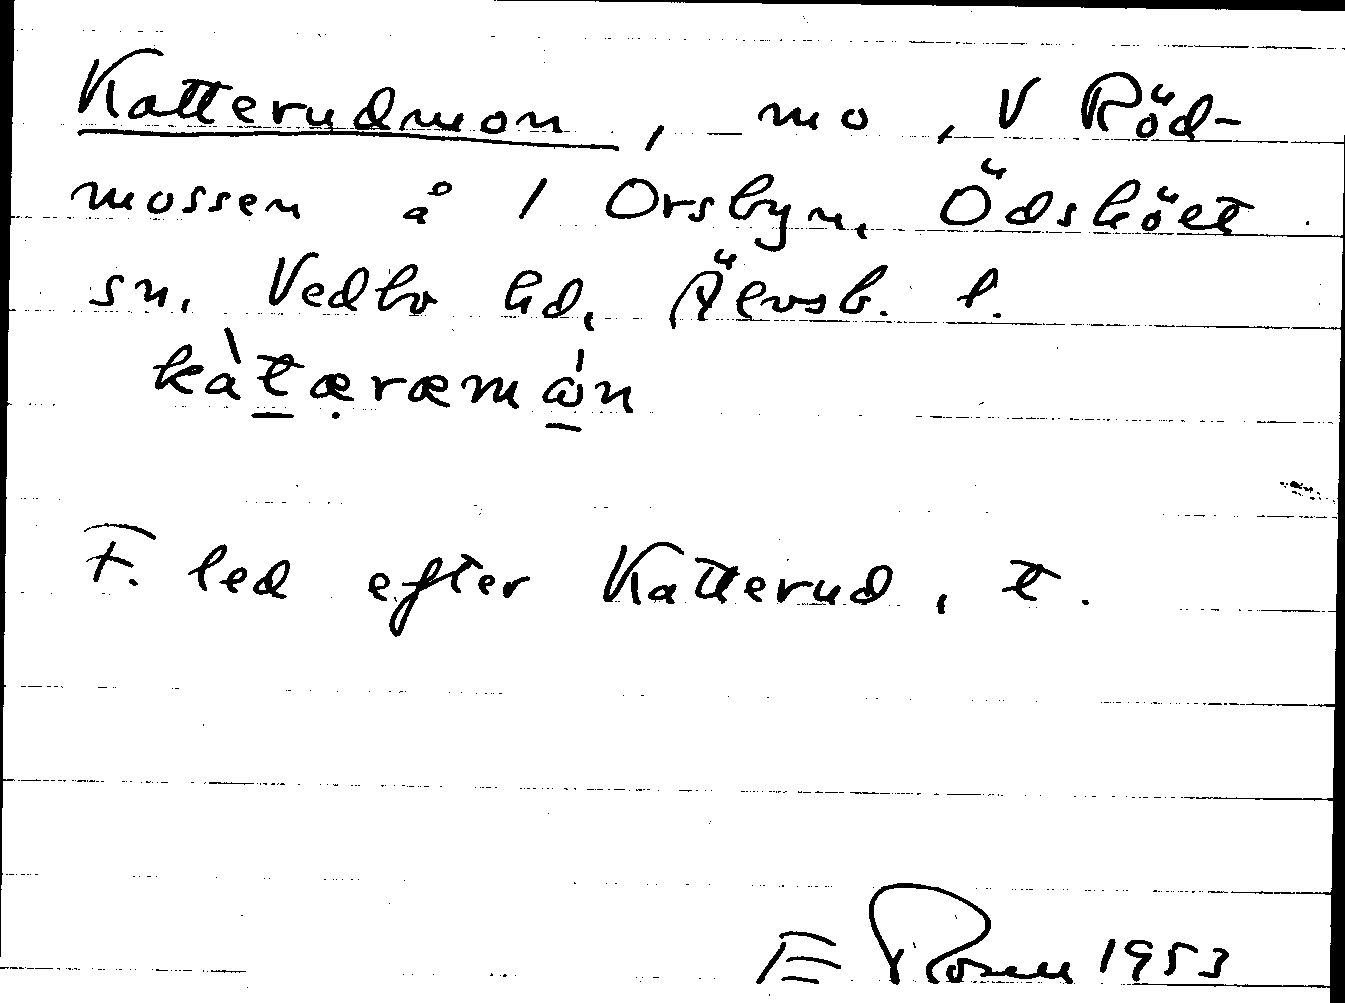 Katterudmon, mo, V Röd-
mossen å 1 Orsbyn, Ödsköet
sn, Vedbo hd, Älvsb. l.
kàtæræmån
F. led efter Katterud, t.
E Rosen 1953